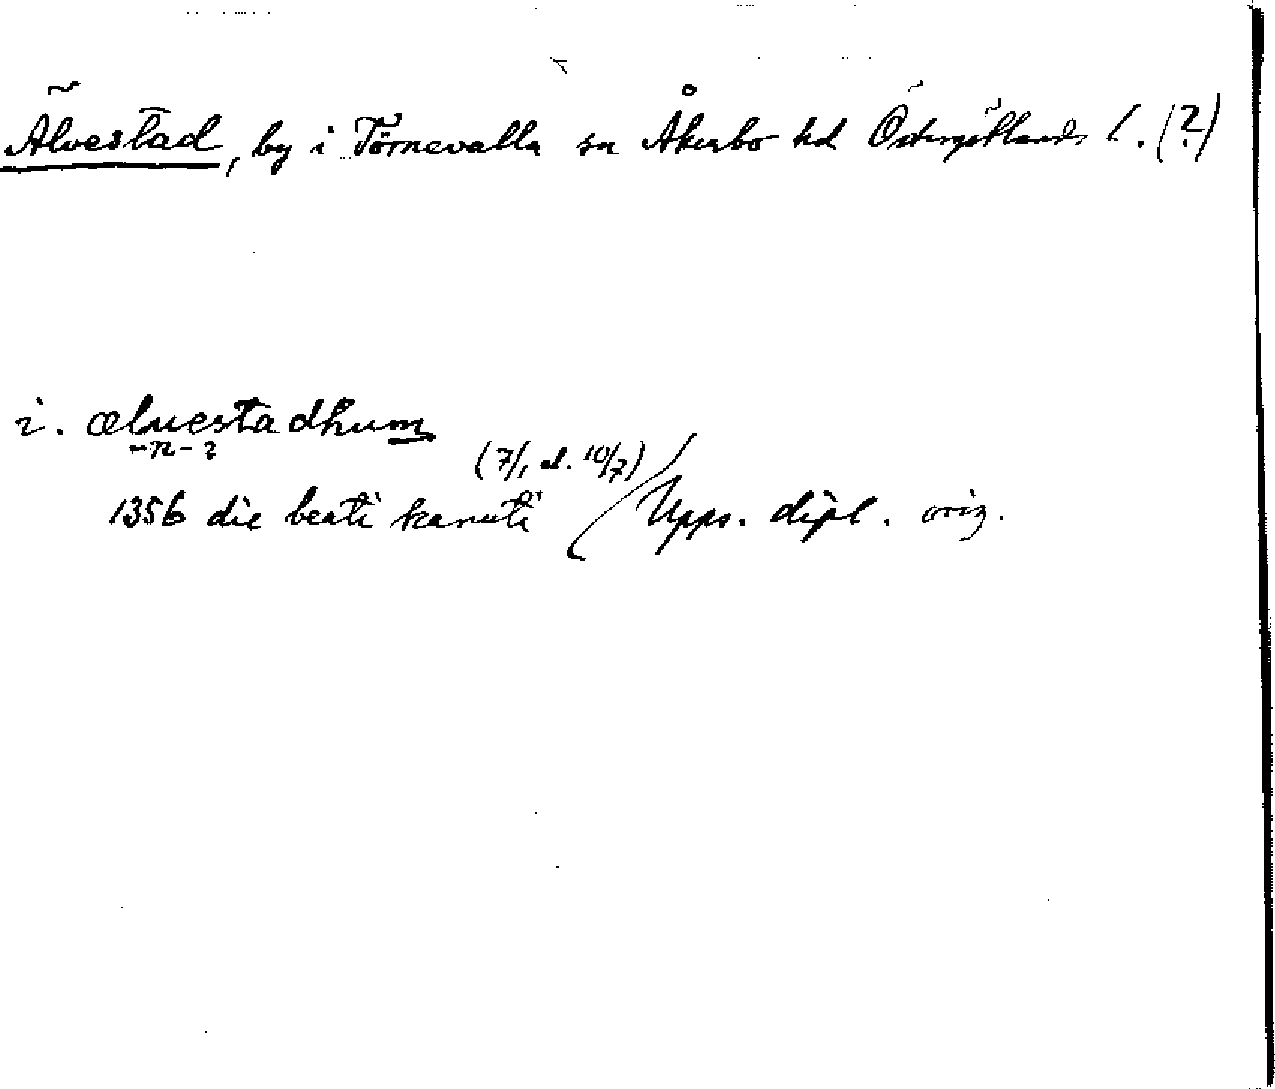 Älvestad, by i Törnevalla sn Åkerbo hd Östergötlands l. (?)
i. æluestadhum
-n-?
(7/1 el. 10/7)
1356 die beati kanuti Upps. dipl. orig.